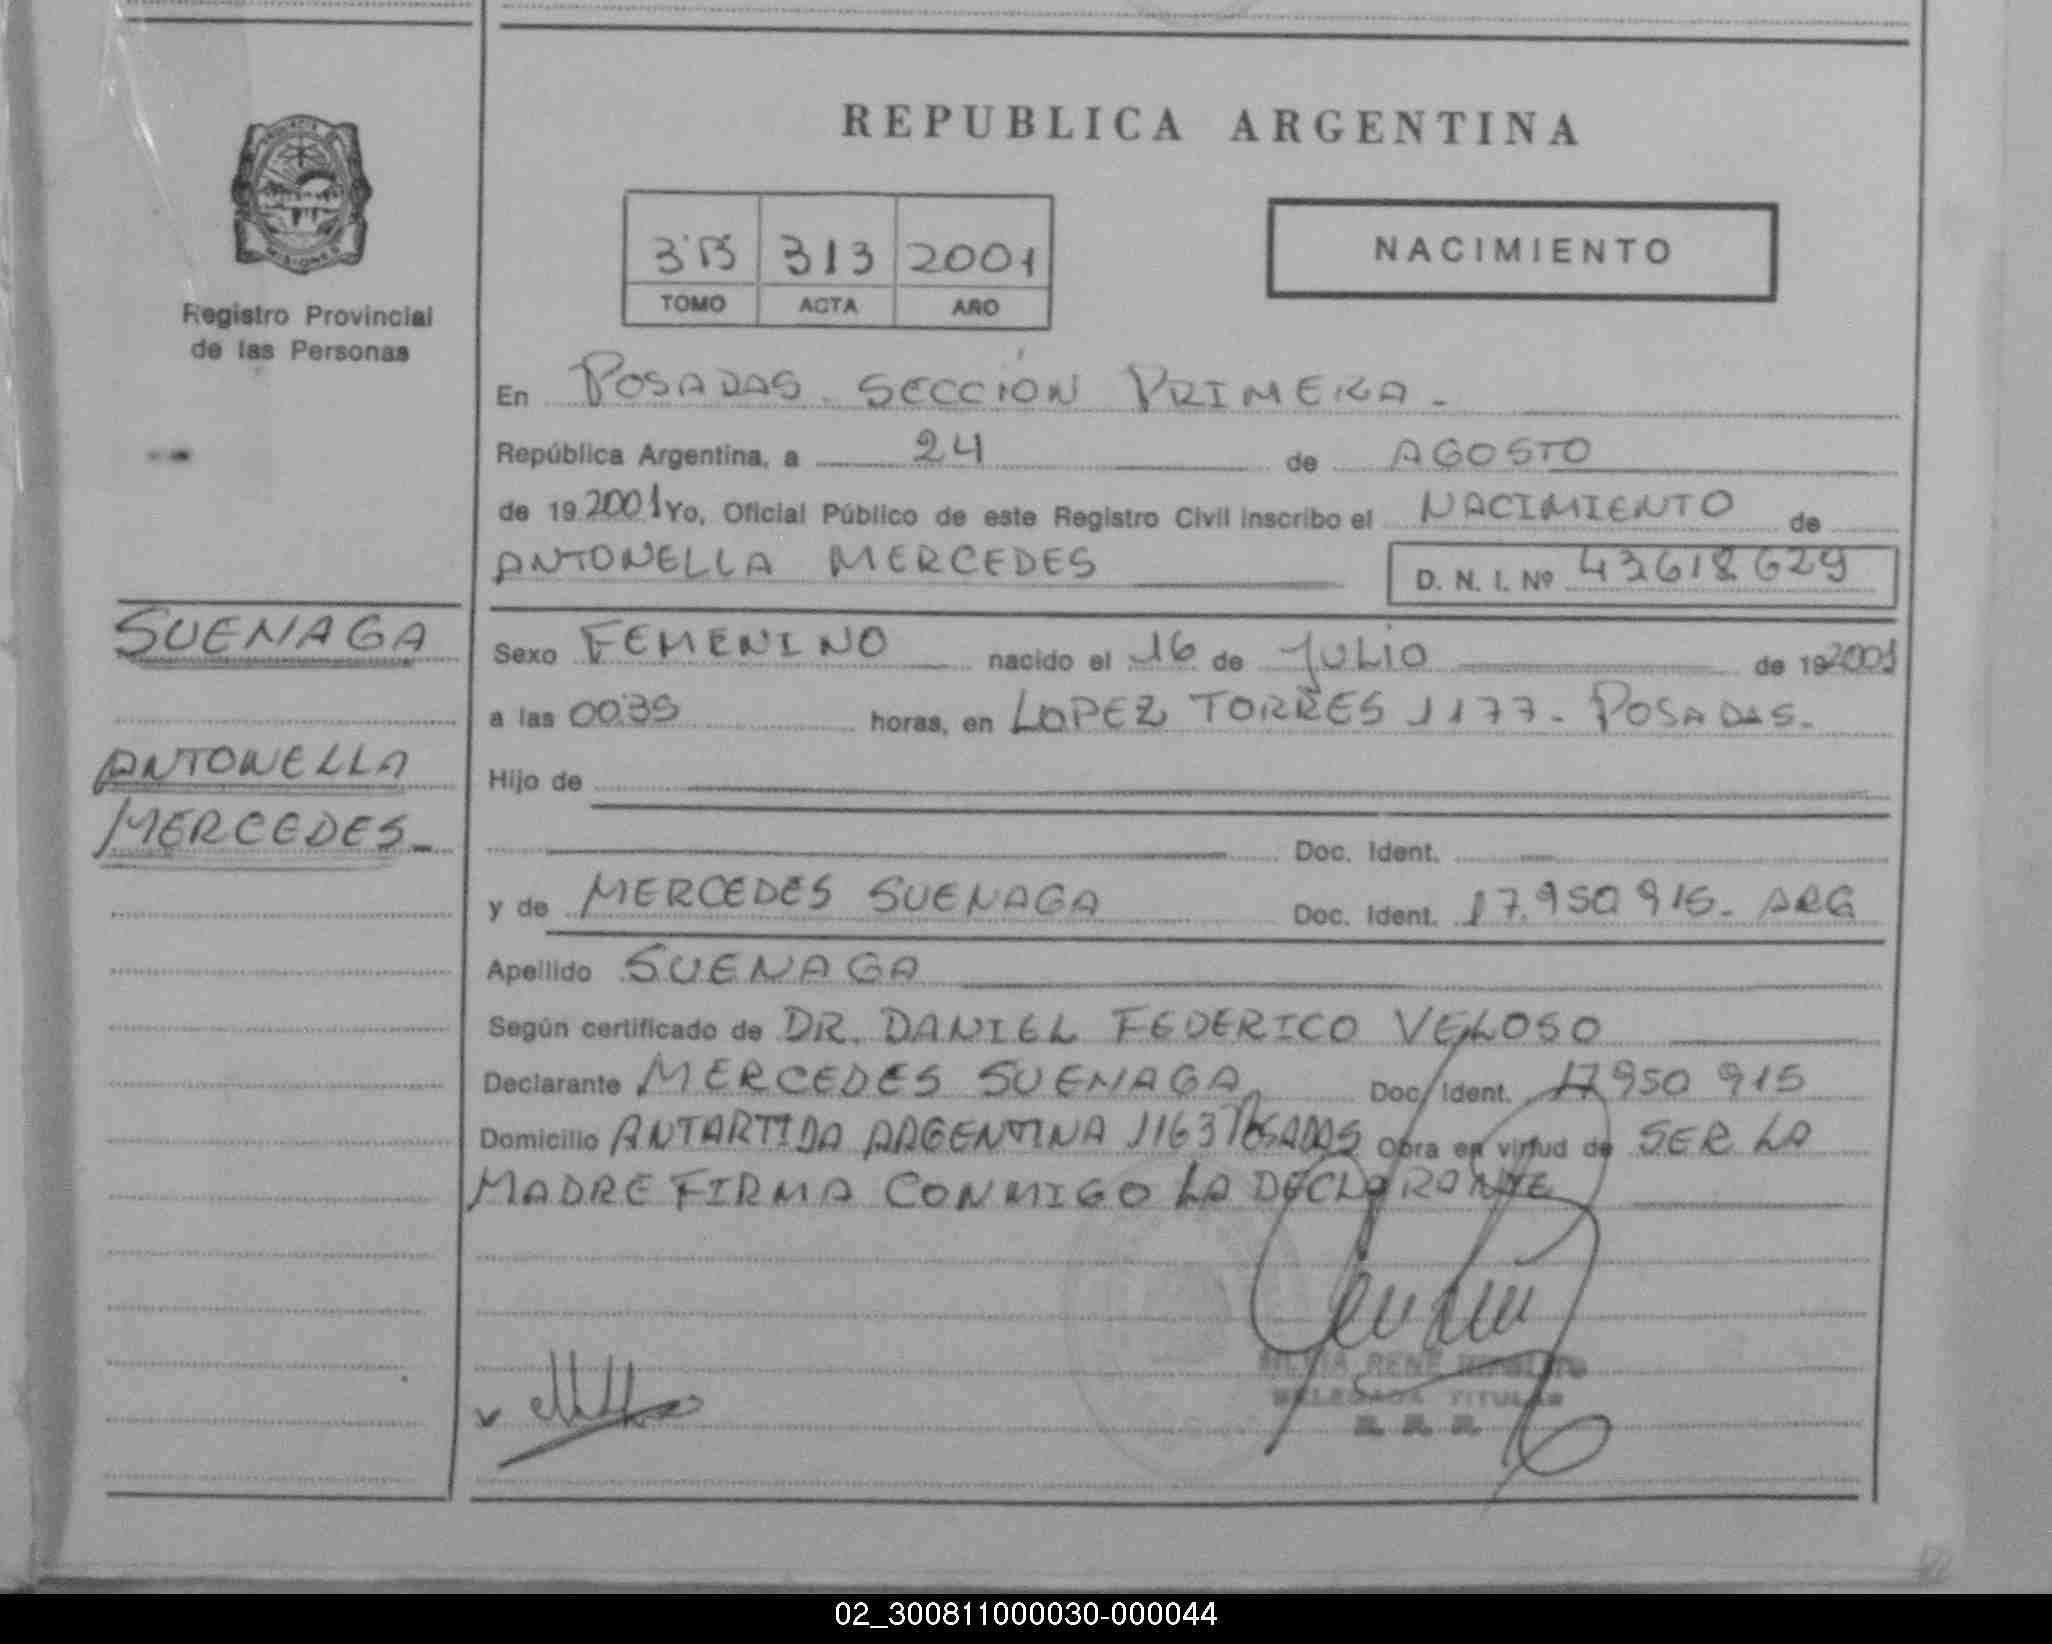 REPUBLICA ARGENTINA
3ºB 313 2001
TOMO ACTA AÑO
NACIMIENTO
MISIONES
Registro Provincial
de las Personas
En POSADAS. SECCIÓN PRIMERA.
República Argentina, a 24 de AGOSTO
de 19 2001 Yo, Oficial Público de este Registro Civil inscribo el NACIMIENTO de
ANTONELLA MERCEDES D. N. I. Nº 43618629
SUENAGA
ANTONELLA
MERCEDES
Sexo FEMENINO nacido el 16 de JULIO de 19 2001
a las 0035 horas, en LOPEZ TORRES 1177. POSADAS.
Hijo de
Doc. Ident.
y de MERCEDES SUENAGA Doc. Ident. 17.950 915. ARG
Apellido SUENAGA
Según certificado de DR. DANIEL FEDERICO VELOSO
Declarante MERCEDES SUENAGA Doc. Ident. 17950 915
Domicilio ANTARTIDA ARGENTINA 1163 POSADAS Obra en virtud de SER LA
MADRE FIRMA CONMIGO LA DECLARANTE
SILVIA RENE
DELEGADA TITULAR
02_300811000030-000044